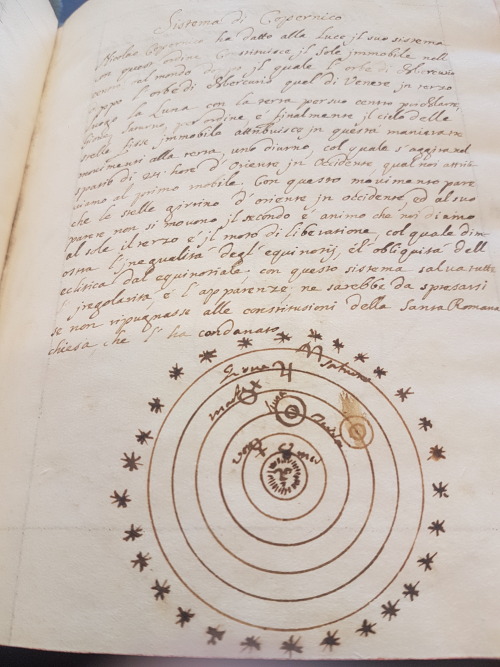 Sistema di Copernico
Nicolao Copernico ha datto alla Luce jl suo sistema
con questo ordine Constituisce jl Sole immobile nell
del mondo dopo jl quale l'orbe di Mercurio
e dopo l'orbe di Mercurio quel di Venere jn terzo
luogo la Luna con la terra per suo centro
Giove Saturno, per ordine è finalmente jl cielo delle
stelle fisse immobile attribuisce jn questa maniera tre
movimenti alla terra, uno diurno, col quale s'aggira nel
spatio di 24: hore d'Oriente jn Occidente qual noi attrib-
uiamo al primo mobile. Con questo movimento pare
che le stelle girino d'oriente jn occidente, ed al suo
parere non si movono jl secondo è animo che noi diamo
al sole il terzo è jl moto di liberatione, col quale dim-
ostra l'inequalità degl'equinotij, è l'obliquità dell
eclitica dal equinotiale, con questo sistema salva tutte
l'ingolarità è l'apparenze, ne sarebbe da sprezarsi
se non ripugnasse alle constitusioni della Santa Romana
chiesa che l'ha condanato
Saturno
Giove ♃
marte
Luna
terra